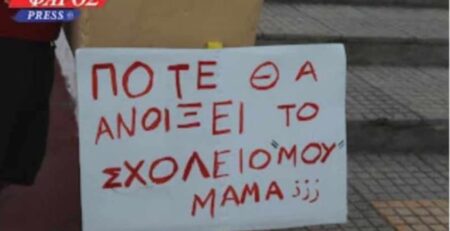 ΦΑΡΟΣ
PRESS
ΠΟΤΕ ΘΑ
ΑΝΟΙΞΕΙ ΤΟ
ΣΧΟΛΕΙΟ "ΜΟΥ"
ΜΑΜΑ ;;;